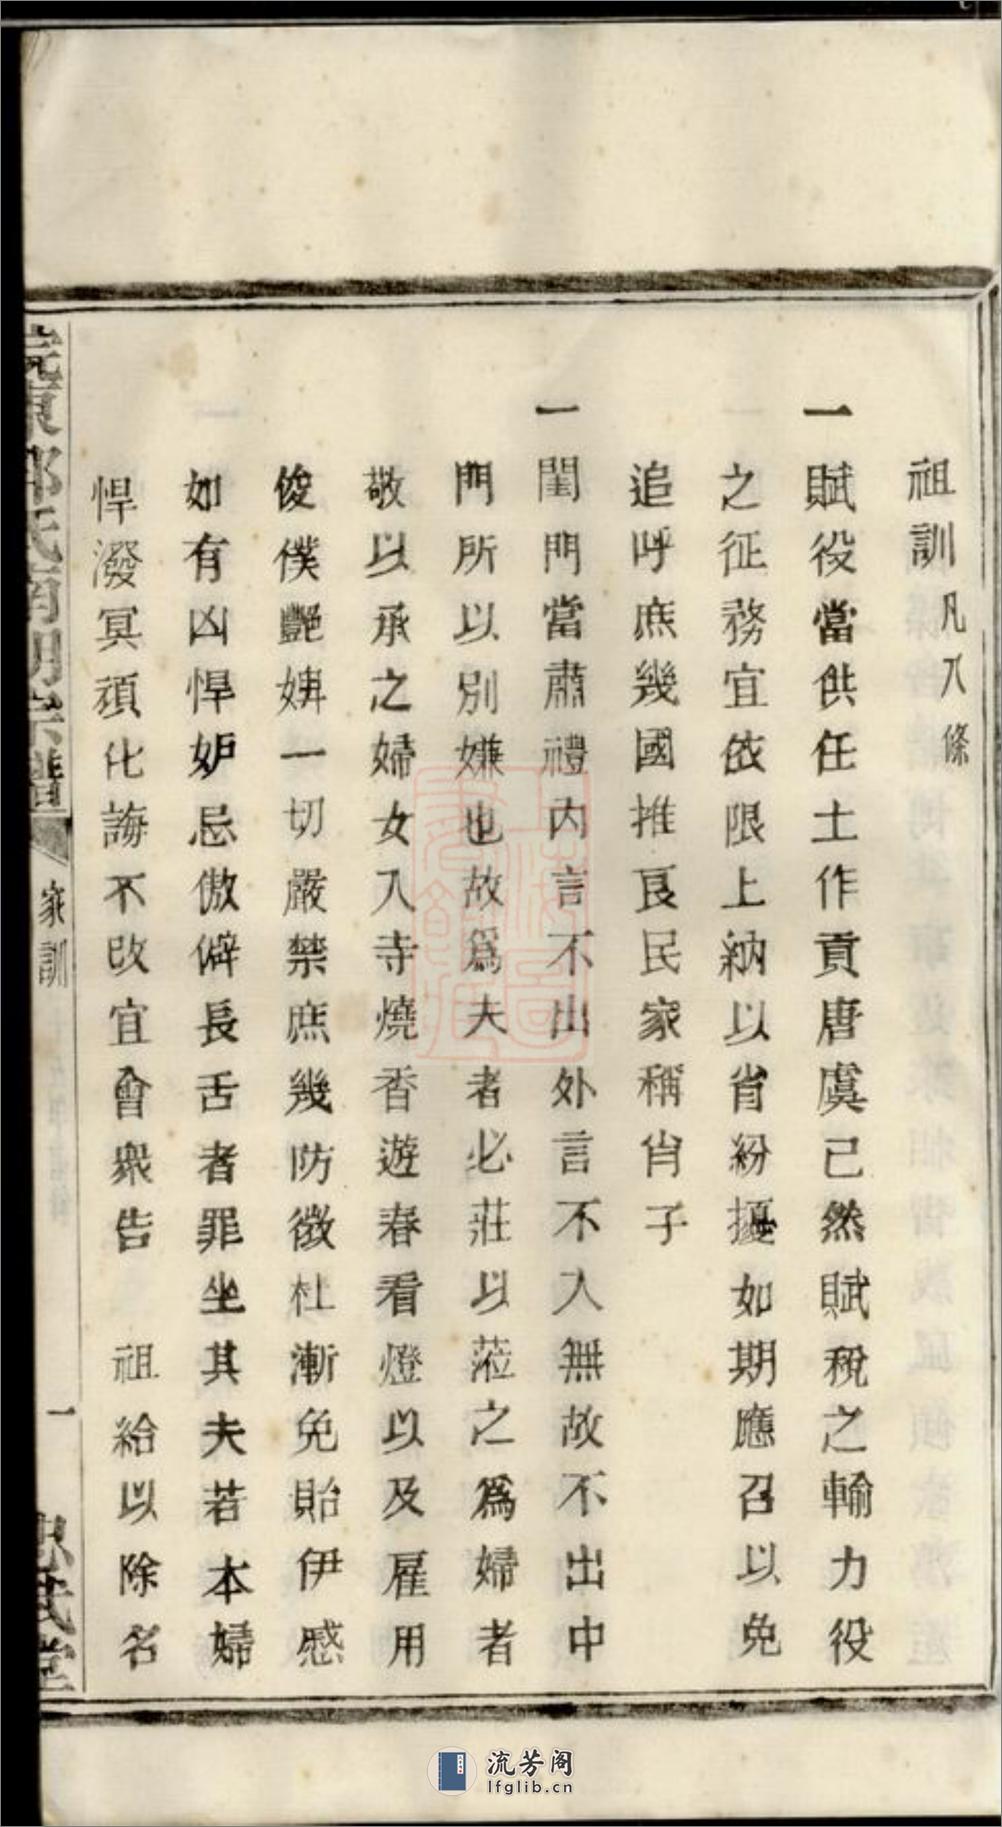 祖訓凡八條
一賦役當供任土作貢唐虞已然賦稅之輸力役
之征務宜依限上納以省紛擾如期應召以免
追呼庶幾國推良民家稱肖子
一閨門當肅禮內言不出外言不入無故不出中
門所以別嫌也故爲夫者必莊以蒞之爲婦者
敬以承之婦女入寺燒香遊春看燈以及雇用
俊僕艷婢一切嚴禁庶幾防微杜漸免貽伊感
如有凶悍妒忌傲僻長舌者罪坐其夫若本婦
悍潑冥頑化誨不改宜會衆告 祖給以除名
氏南湖宗譜
家訓
一
忠武堂
上海圖書館藏
流芳阁
lfglib.cn